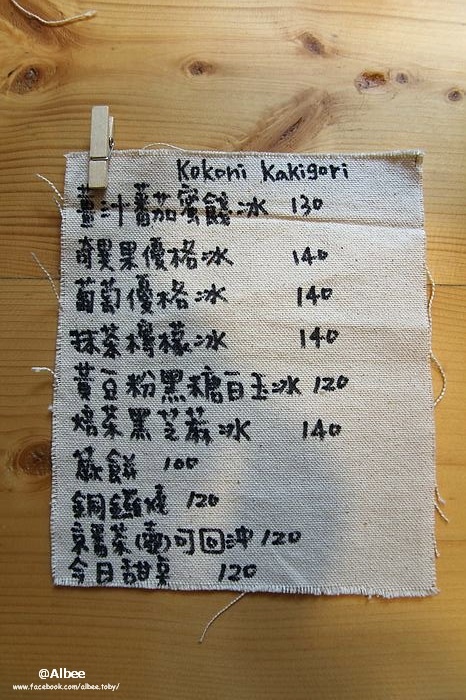 Kokoni Kakigori
薑汁蕃茄蜜餞冰 130
奇異果優格冰 140
葡萄優格冰 140
抹茶檸檬冰 140
黃豆粉黑糖白玉冰 120
焙茶黑芝麻冰 140
蕨餅 100
銅鑼燒 120
京番茶(壺)可回沖 120
今日甜點 120
@Albee
www.facebook.com/albee.toby/